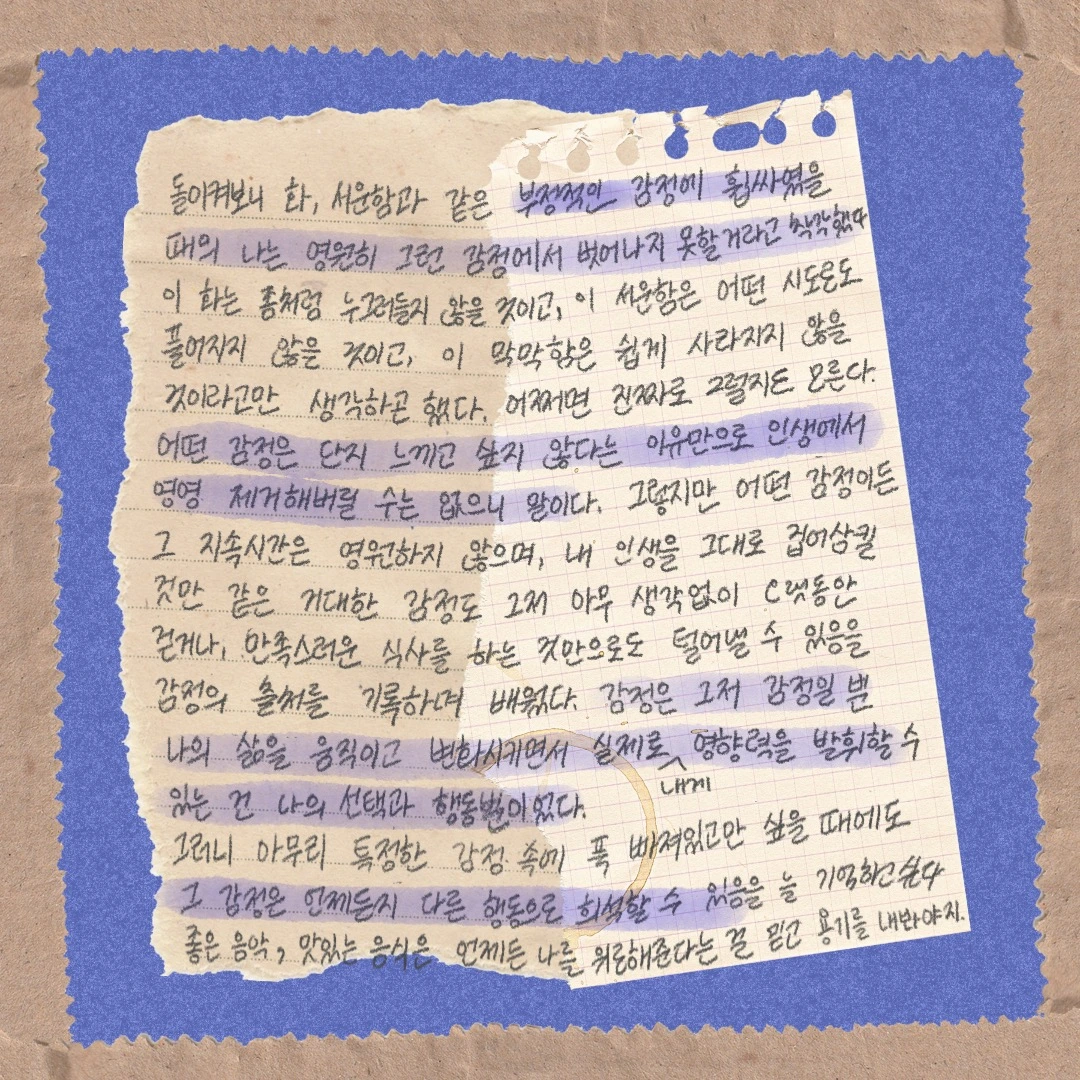 돌이켜보니 화, 서운함과 같은 부정적인 감정에 휩싸였을
때의 나는 영원히 그런 감정에서 벗어나지 못할거라고 생각했다
이 화는 좀처럼 누그러들지 않을 것이고, 이 서운함은 어떤 시도로도
풀어지지 않을 것이고, 이 막막함은 쉽게 사라지지 않을
것이라고만 생각하곤 했다. 어쩌면 진짜로 그럴지도 모른다.
어떤 감정은 단지 느끼고 싶지 않다는 이유만으로 인생에서
영영 제거해버릴 수는 없으니 말이다. 그렇지만 어떤 감정이든
그 지속시간은 영원하지 않으며, 내 인생을 그대로 집어삼킬
것만 같은 거대한 감정도 그저 아무 생각없이 오랫동안
걷거나, 만족스러운 식사를 하는 것만으로도 털어낼 수 있음을
감정의 출처를 기록하며 배웠다. 감정은 그저 감정일 뿐
나의 삶을 움직이고 변화시키면서 실제로 영향력을 발휘할 수
내게
있는 건 나의 선택과 행동뿐이었다.
그러니 아무리 특정한 감정 속에 푹 빠져있고만 싶을 때에도
그 감정은 언제든지 다른 행동으로 희석할 수 있음을 늘 기억하고싶다
좋은 음악, 맛있는 음식은 언제든 나를 위로해준다는 걸 믿고 용기를 내봐야지.